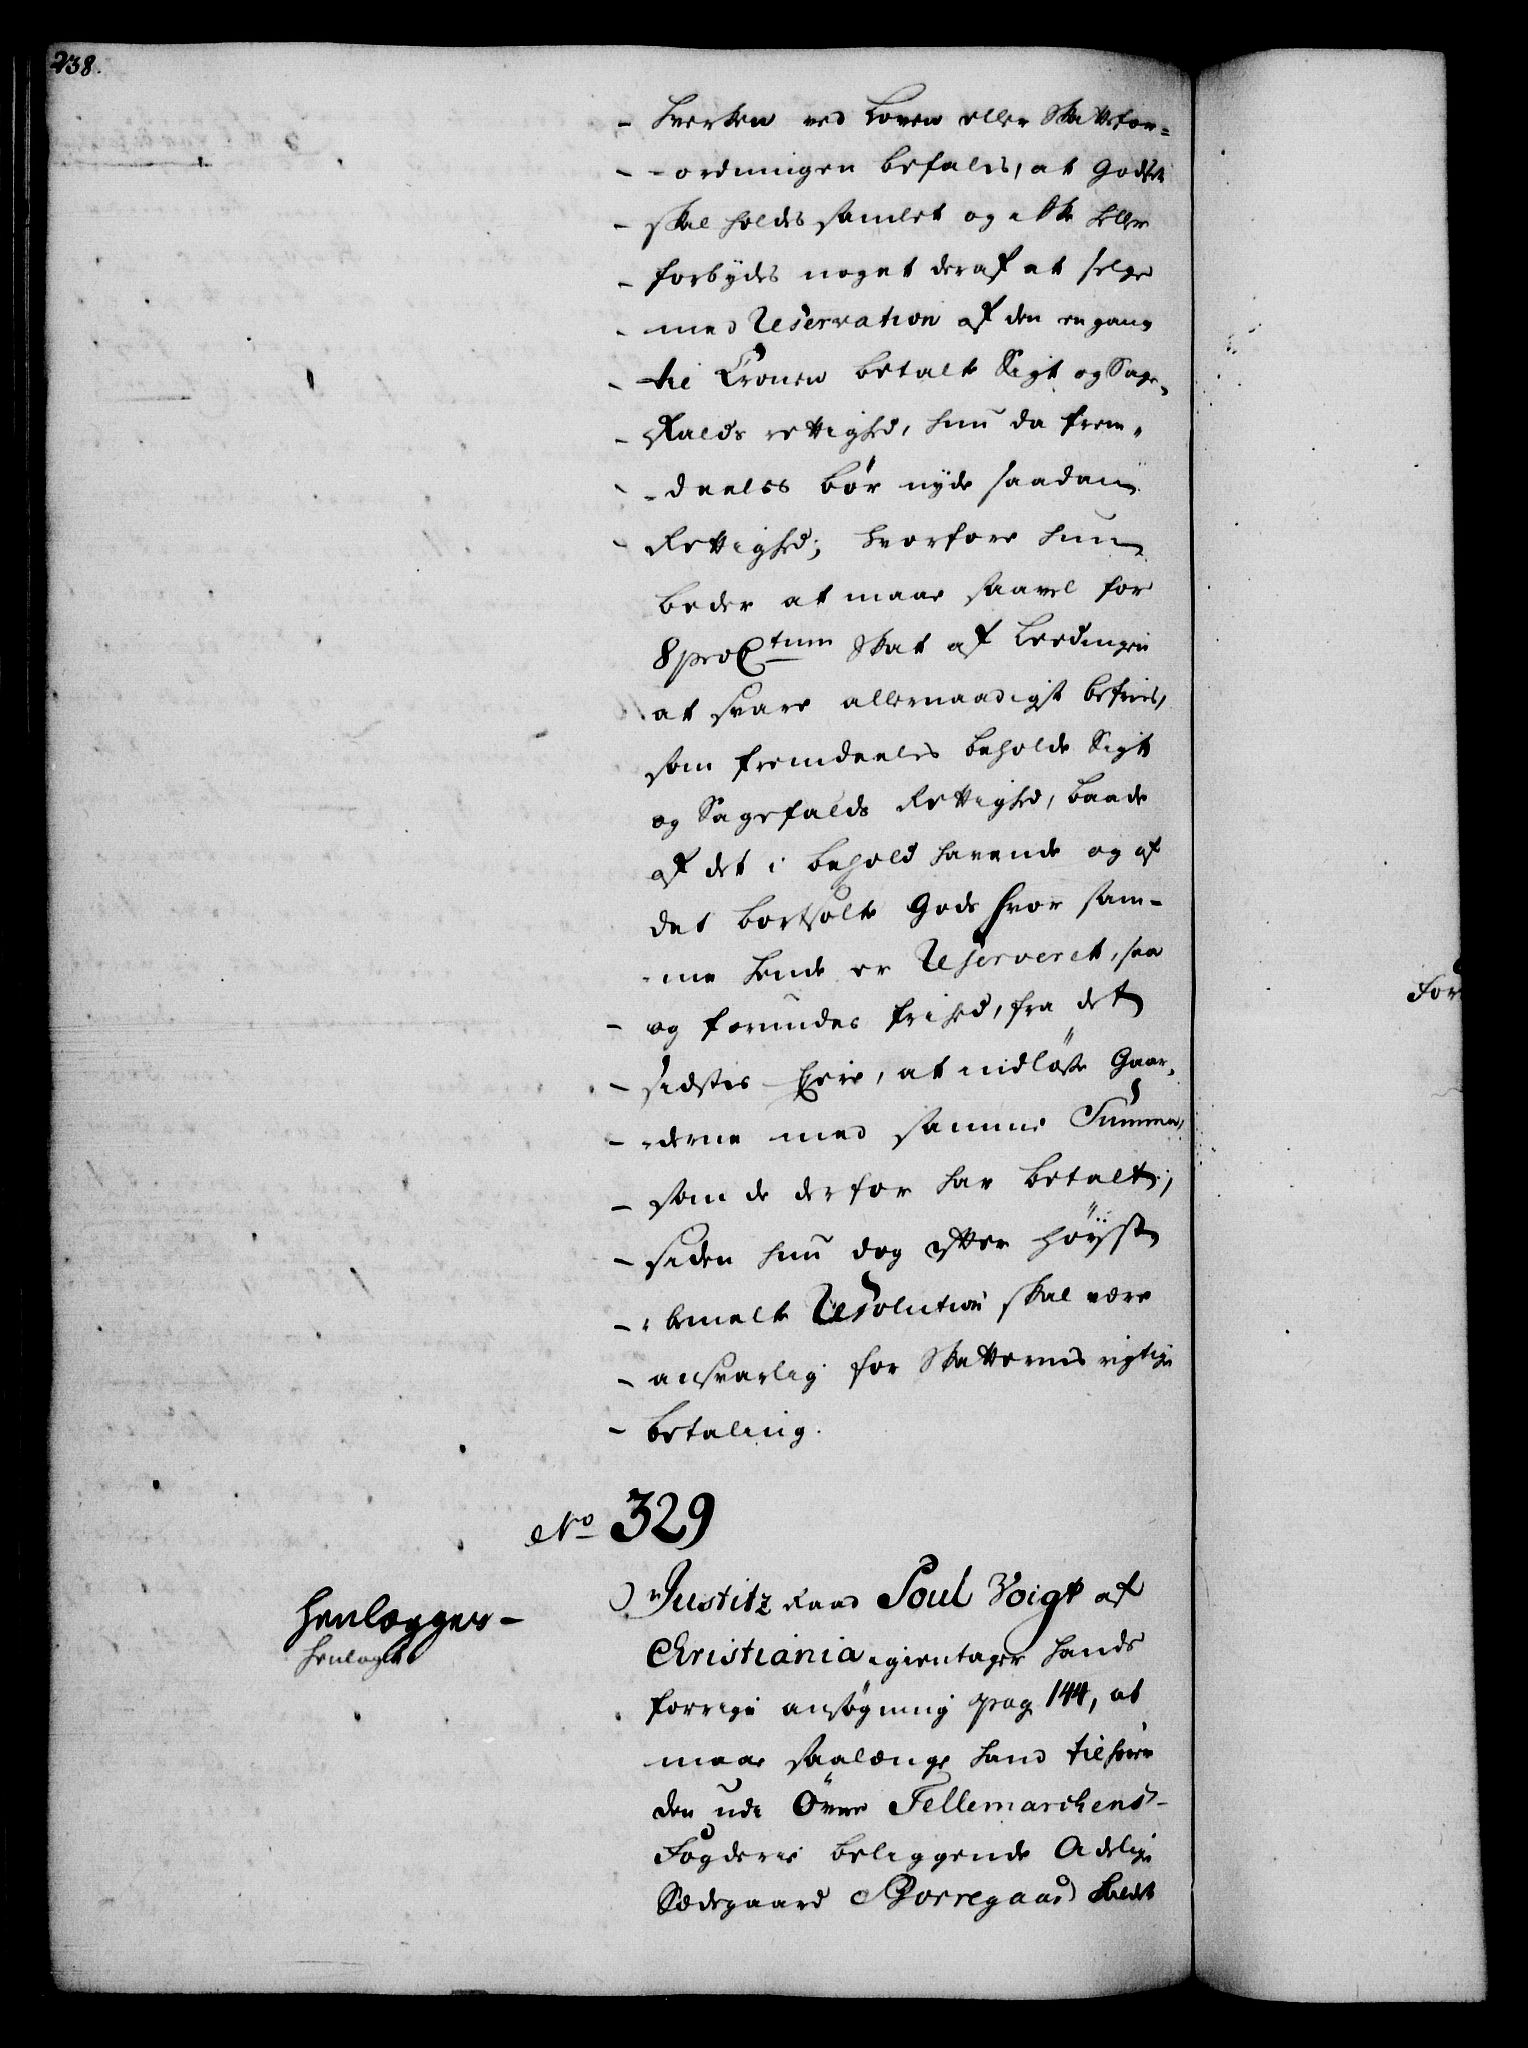 238.
hverken ved Loven eller Skattefor=
-ordningen befales, at Godset
skal holdes samlet og ikke heller
forbydes noget deraf at selge
med Reservation af den engang
til Cronen betalte Sigt og Sage-
falds rettighed, hun da frem-
-deeles bør nyde saadan
Rettighed; hvorfore hun
beder at maae saavel for
8 proCtum Skat af Leedingen
at svare allernaadigst befries,
som fremdeeles beholde Sigt
og Sagefalds Rettighed, baade
af det i behold havende og af
det bortsolte Gods hvor sam-
-me hende er Reserveret, saa
og forundes frihed, fra det
sidstes Eere, at indløse Gaar-
-derne med samme Summa,
som de derfor har betalt;
siden hun dog efter høyst-
-bemelte Resolution skal være
ansvarlig for Skatternes rigtige
betaling.
No 329
Justitz Raad Poul Voigt af
Christiania igientager hands
forrige ansøgning pag 144, at
maae saalænge hand tilhører
den udi Øvre Tellemarckens
Fogderie beliggende Adelige
Sædegaard Borregaard kaldet
Henlægges-
henlagt
For